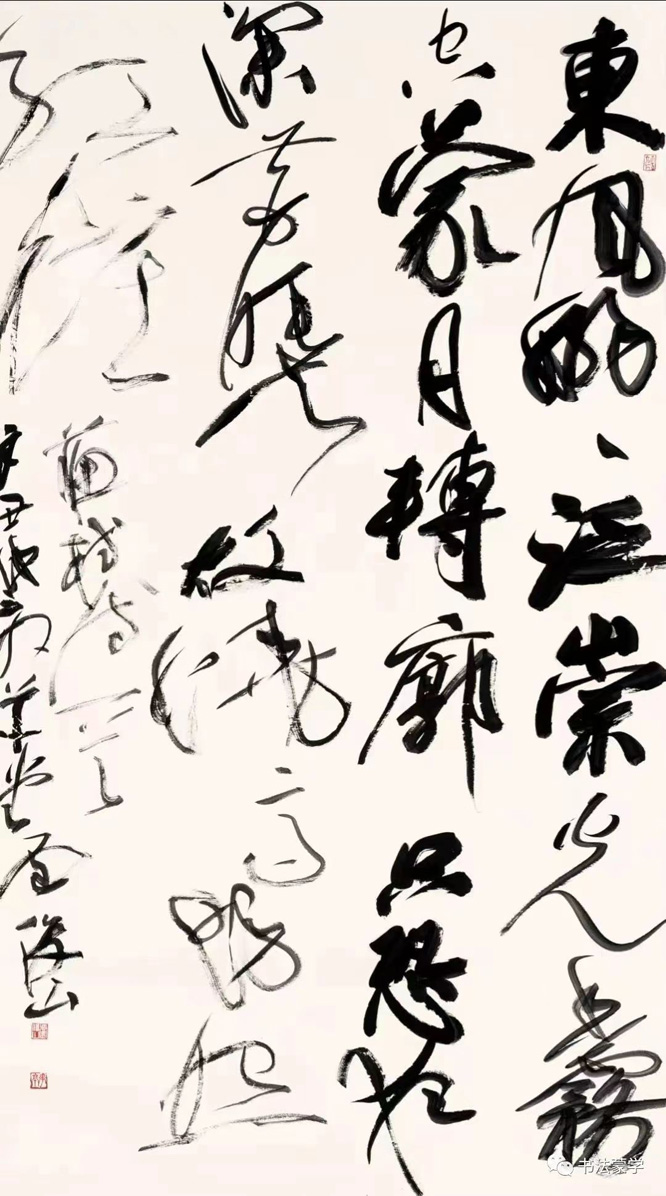 東風嫋々泛崇光香霧
空蒙月轉廊只恐夜
深花睡去故燒高燭照
紅妝
蘇軾詩
辛丑
书法蒙学